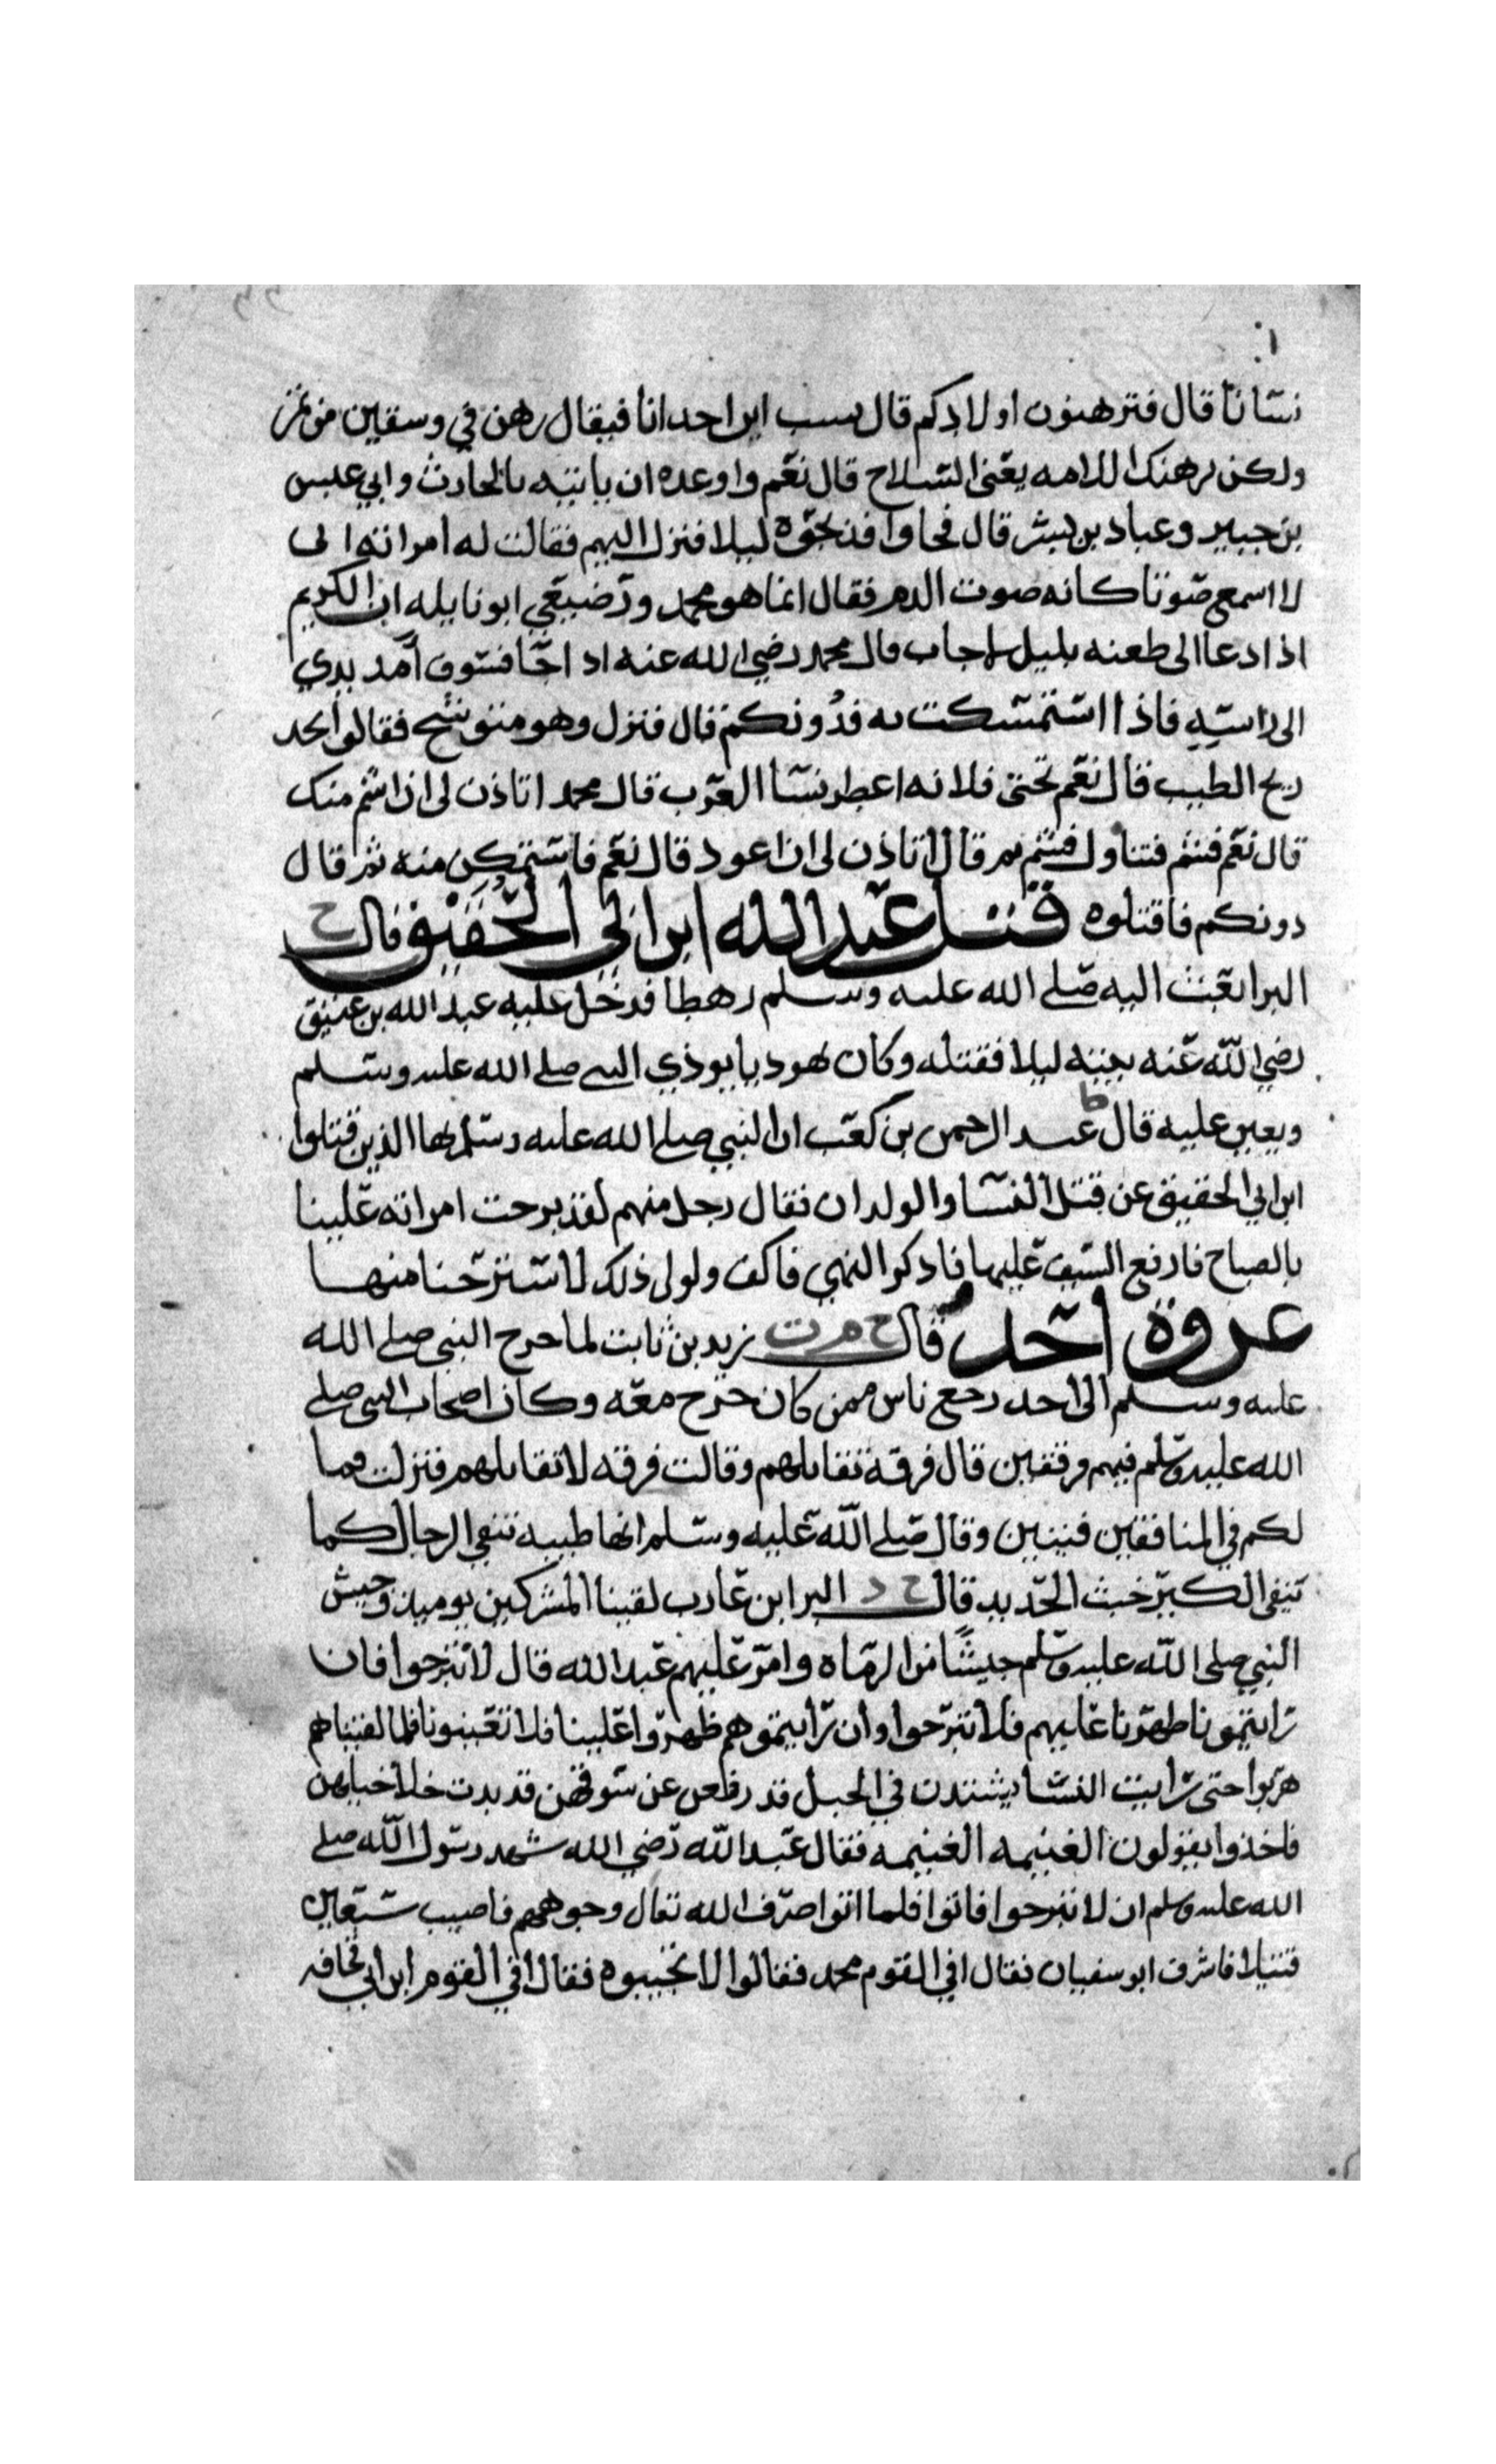 نسانا قال فترهنون اولادكم قال يسب ابن احدانا فيقال رهن في وسقين من تمز
ولكن نرهنك اللامه يعني السلاح قال نعم واوعده ان ياتيه بالحارث وابي عبس
بن جبير وعباد بن بشر قال فجاوا فدعوه ليلا فنزل اليهم فقالت له امراته اني
لا اسمع صوتا كانه صوت الدم فقال انما هو محمد ورضيعي ابو نايله ان الكريم
اذا دعا الى طعنه بليل اجاب قال محمد رضي الله عنه اذا جا فسوف امد يدي
الى راسه فاذا استمسكت به فدونكم قال فنزل وهو متوشح فقالوا نجد
ريح الطيب قال نعم تحتي فلانه اعطر نسا العرب قال محمد اتاذن لي ان اشم منك
قال نعم فشم فتناول فشم ثم قال اتاذن لي ان اعود قال نعم فاستمكن منه ثم قال
دونكم فاقتلوه قتل عبد الله ابن ابي الحقيق قال ح
البرا بعث اليه صلى الله عليه وسلم رهطا فدخل عليه عبد الله بن عتيق
رضي الله عنه بيته ليلا فقتله وكان يهوديا يوذي النبي صلى الله عليه وسلم
ويعين عليه قال ط عبد الرحمن بن كعب ان النبي صلى الله عليه وسلم نها الذين قتلوا
ابن ابي الحقيق عن قتل النسا والولدان فقال رجل منهم لقد برحت امراته علينا
بالصياح فارفع السيف عليها فاذكر النهي فاكف ولولى ذلك لاسترحنا منها
غزوة احد قال خ م ت زيد بن ثابت لما خرج النبي صلى الله
عليه وسلم الى احد رجع ناس ممن كان خرج معه وكان اصحاب النبي صلى
الله عليه وسلم فيهم فرقتين قال فرقة نقاتلهم وقالت فرقه لا نقاتلهم فنزلت فما
لكم في المنافقين فئتين وقال صلى الله عليه وسلم انها طيبه تنفي الرجال كما
تنفي الكير خبث الحديد قال خ د البرا ابن عازب لقينا المشركين يوميذ وجيش
النبي صلى الله عليه وسلم جيشا من الرماه وامر عليهم عبد الله قال لا تبرحوا فان
رايتمونا ظهرنا عليهم فلا تبرحوا وان رايتموهم ظهروا علينا فلا تعينونا فلما لقيناهم
هربوا حتى رايت النسا يشتدن في الجبل قد رفعن عن سوقهن قد بدت خلاخيلهن
فاخذوا يقولون الغنيمه الغنيمه فقال عبد الله رضي الله شهد رسول الله صلى
الله عليه وسلم ان لا تبرحوا فاتوا فلما اتوا صرف الله تعال وجوههم فاصيب سبعين
قتيلا فاشرف ابو سفيان فقال افي القوم محمد فقالوا لا تجيبوه فقال افي القوم ابن ابي قحافه